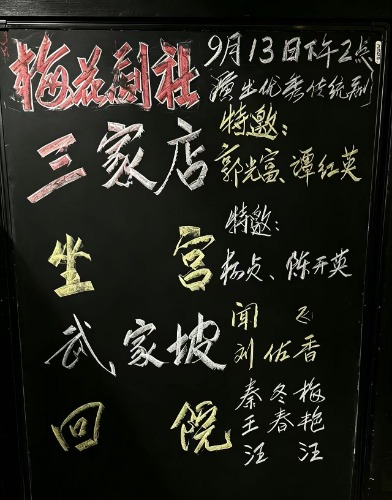 梅花剧社
9月13日下午2点
演出优秀传统剧
三家店
特邀：
郭光富、谭红英
坐宫
特邀：
杨贞、陈开英
武家坡
闻飞
刘佑香
回院
秦冬梅
王春艳
汪汪